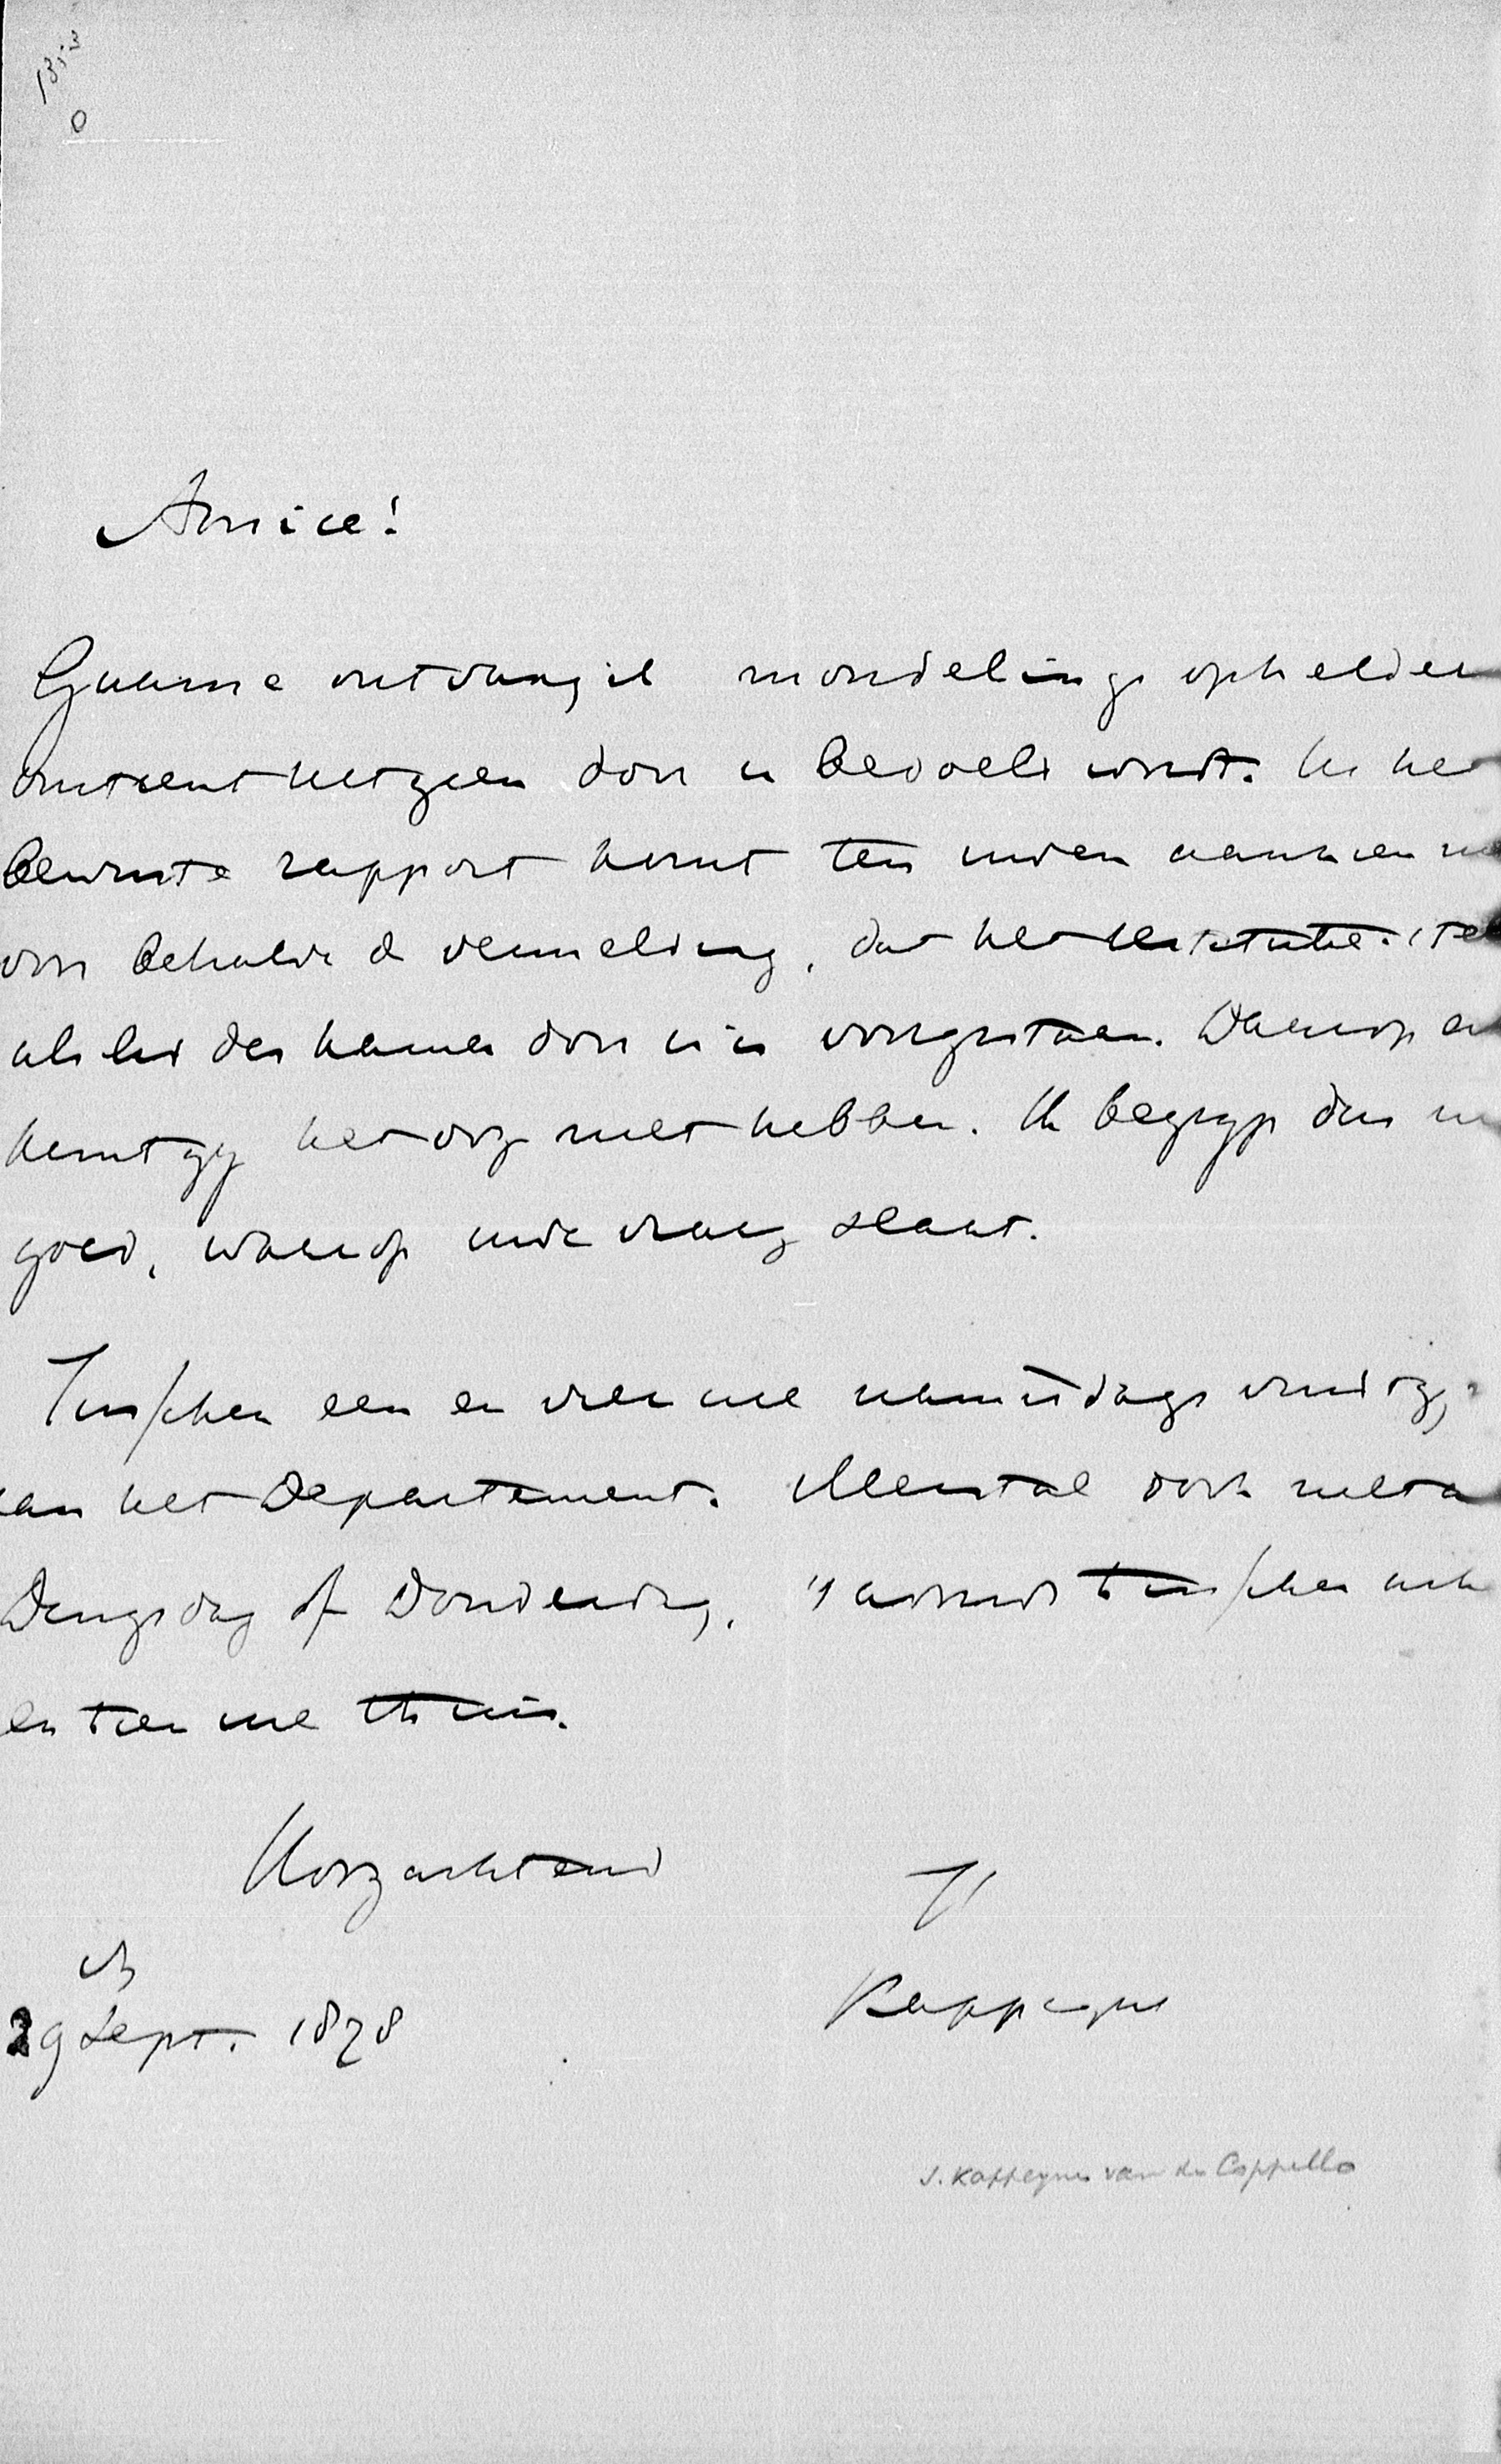 Amice!
Gaarne ontvang ik mondelinge ophelder
omtrent hetgeen door u bedoeld wordt. In het
bewuste rapport komt ten uwen aanzien
voor behalve de vermelding, dat het
als lid der kamer door u is voorgestaan. Daarop
kunt gy het oog niet hebben. Ik begryp dus
goed, waarop uwe vraag slaat.
Tusschen een en vier ure namiddags vindt gy
aan het Departement. Meestal ook
Dingsdag of Donderdag, 's avonds tusschen acht
en tien ure thuis.
Hoogachtend
TT
Kappeyne
29 Sept. 1878
J. Kappeyne van de Coppello